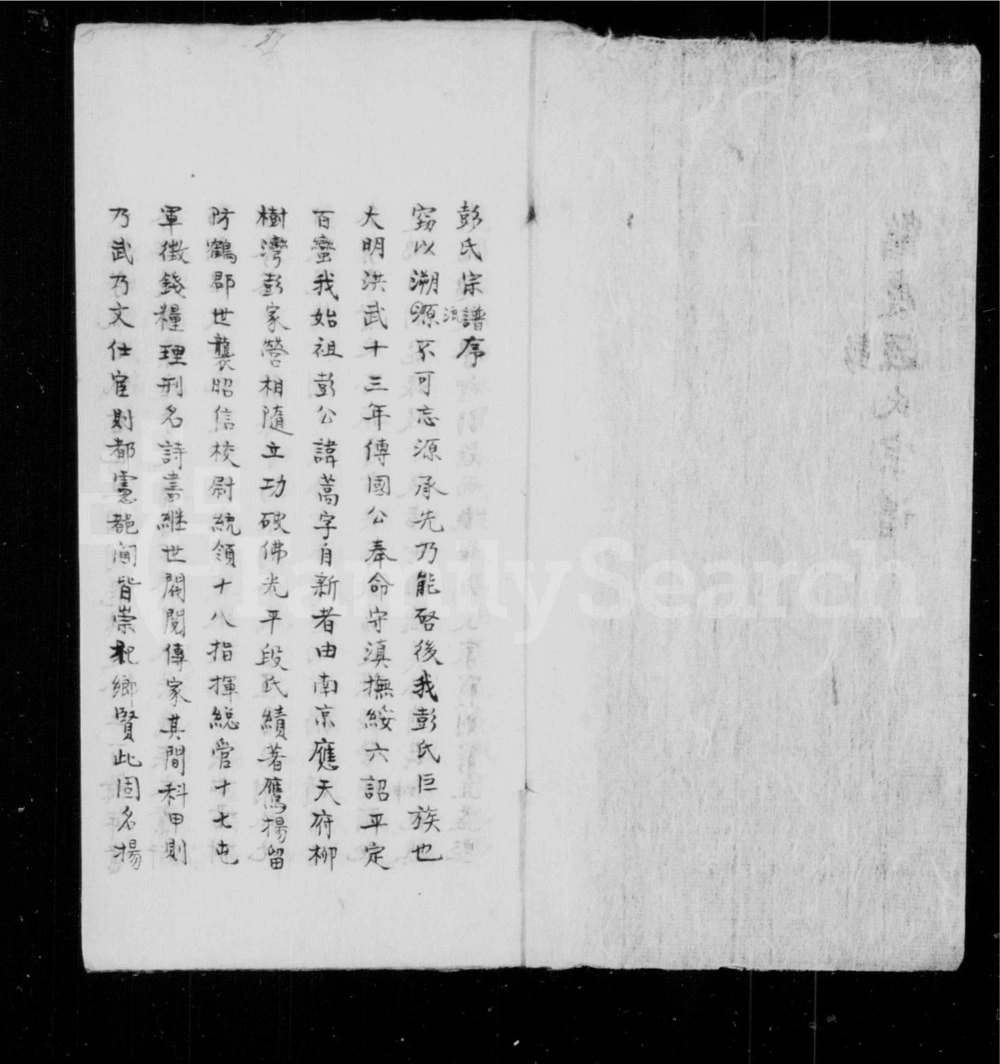 彭氏宗譜序
窃以溯流源不可忘源承先乃能啓後我彭氏巨族也
大明洪武十三年傳國公奉命守滇撫綏六詔平定
百蠻我始祖彭公諱萵字自新者由南京應天府柳
樹灣彭家營相隨立功破佛光平段氏績著鷹揚留
防鶴郡世襲昭信校尉統領十八指揮總管十七屯
軍徵錢糧理刑名詩書継世閥閱傳家其間科甲則
乃武乃文仕宦則都憲都閫皆崇祀鄉賢此固名揚
FamilySearch